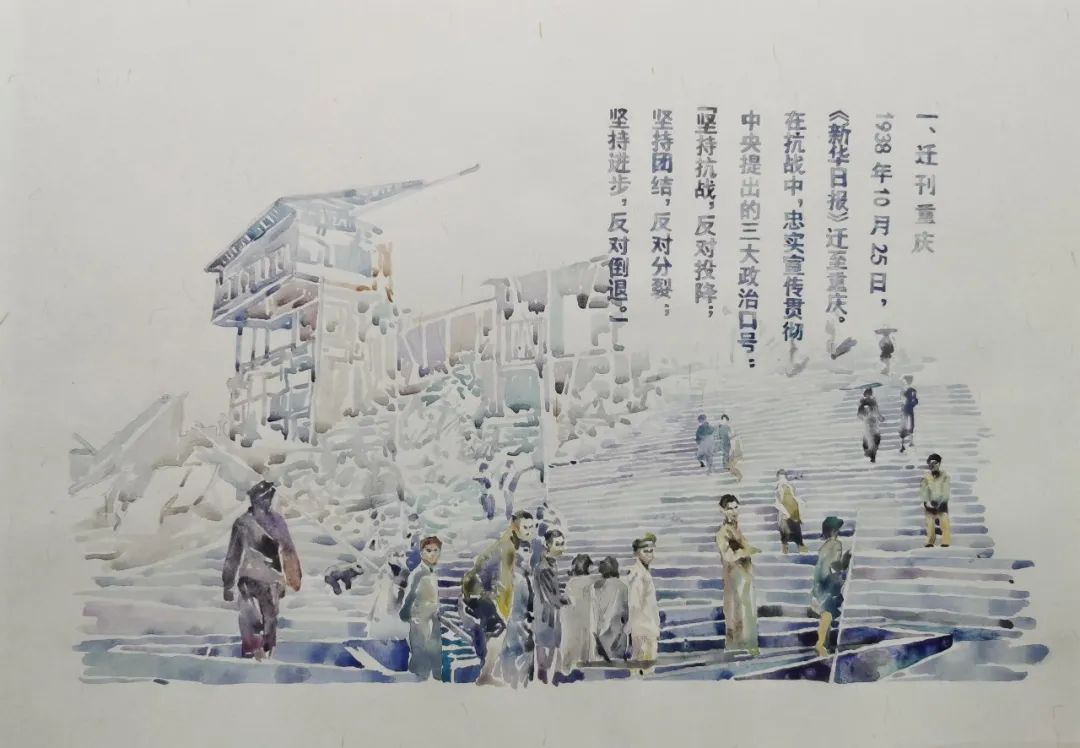 一、迁刊重庆
1938年10月25日，
《新华日报》迁至重庆。
在抗战中，忠实宣传贯彻
中央提出的三大政治口号：
“坚持抗战，反对投降；
坚持团结，反对分裂；
坚持进步，反对倒退。”